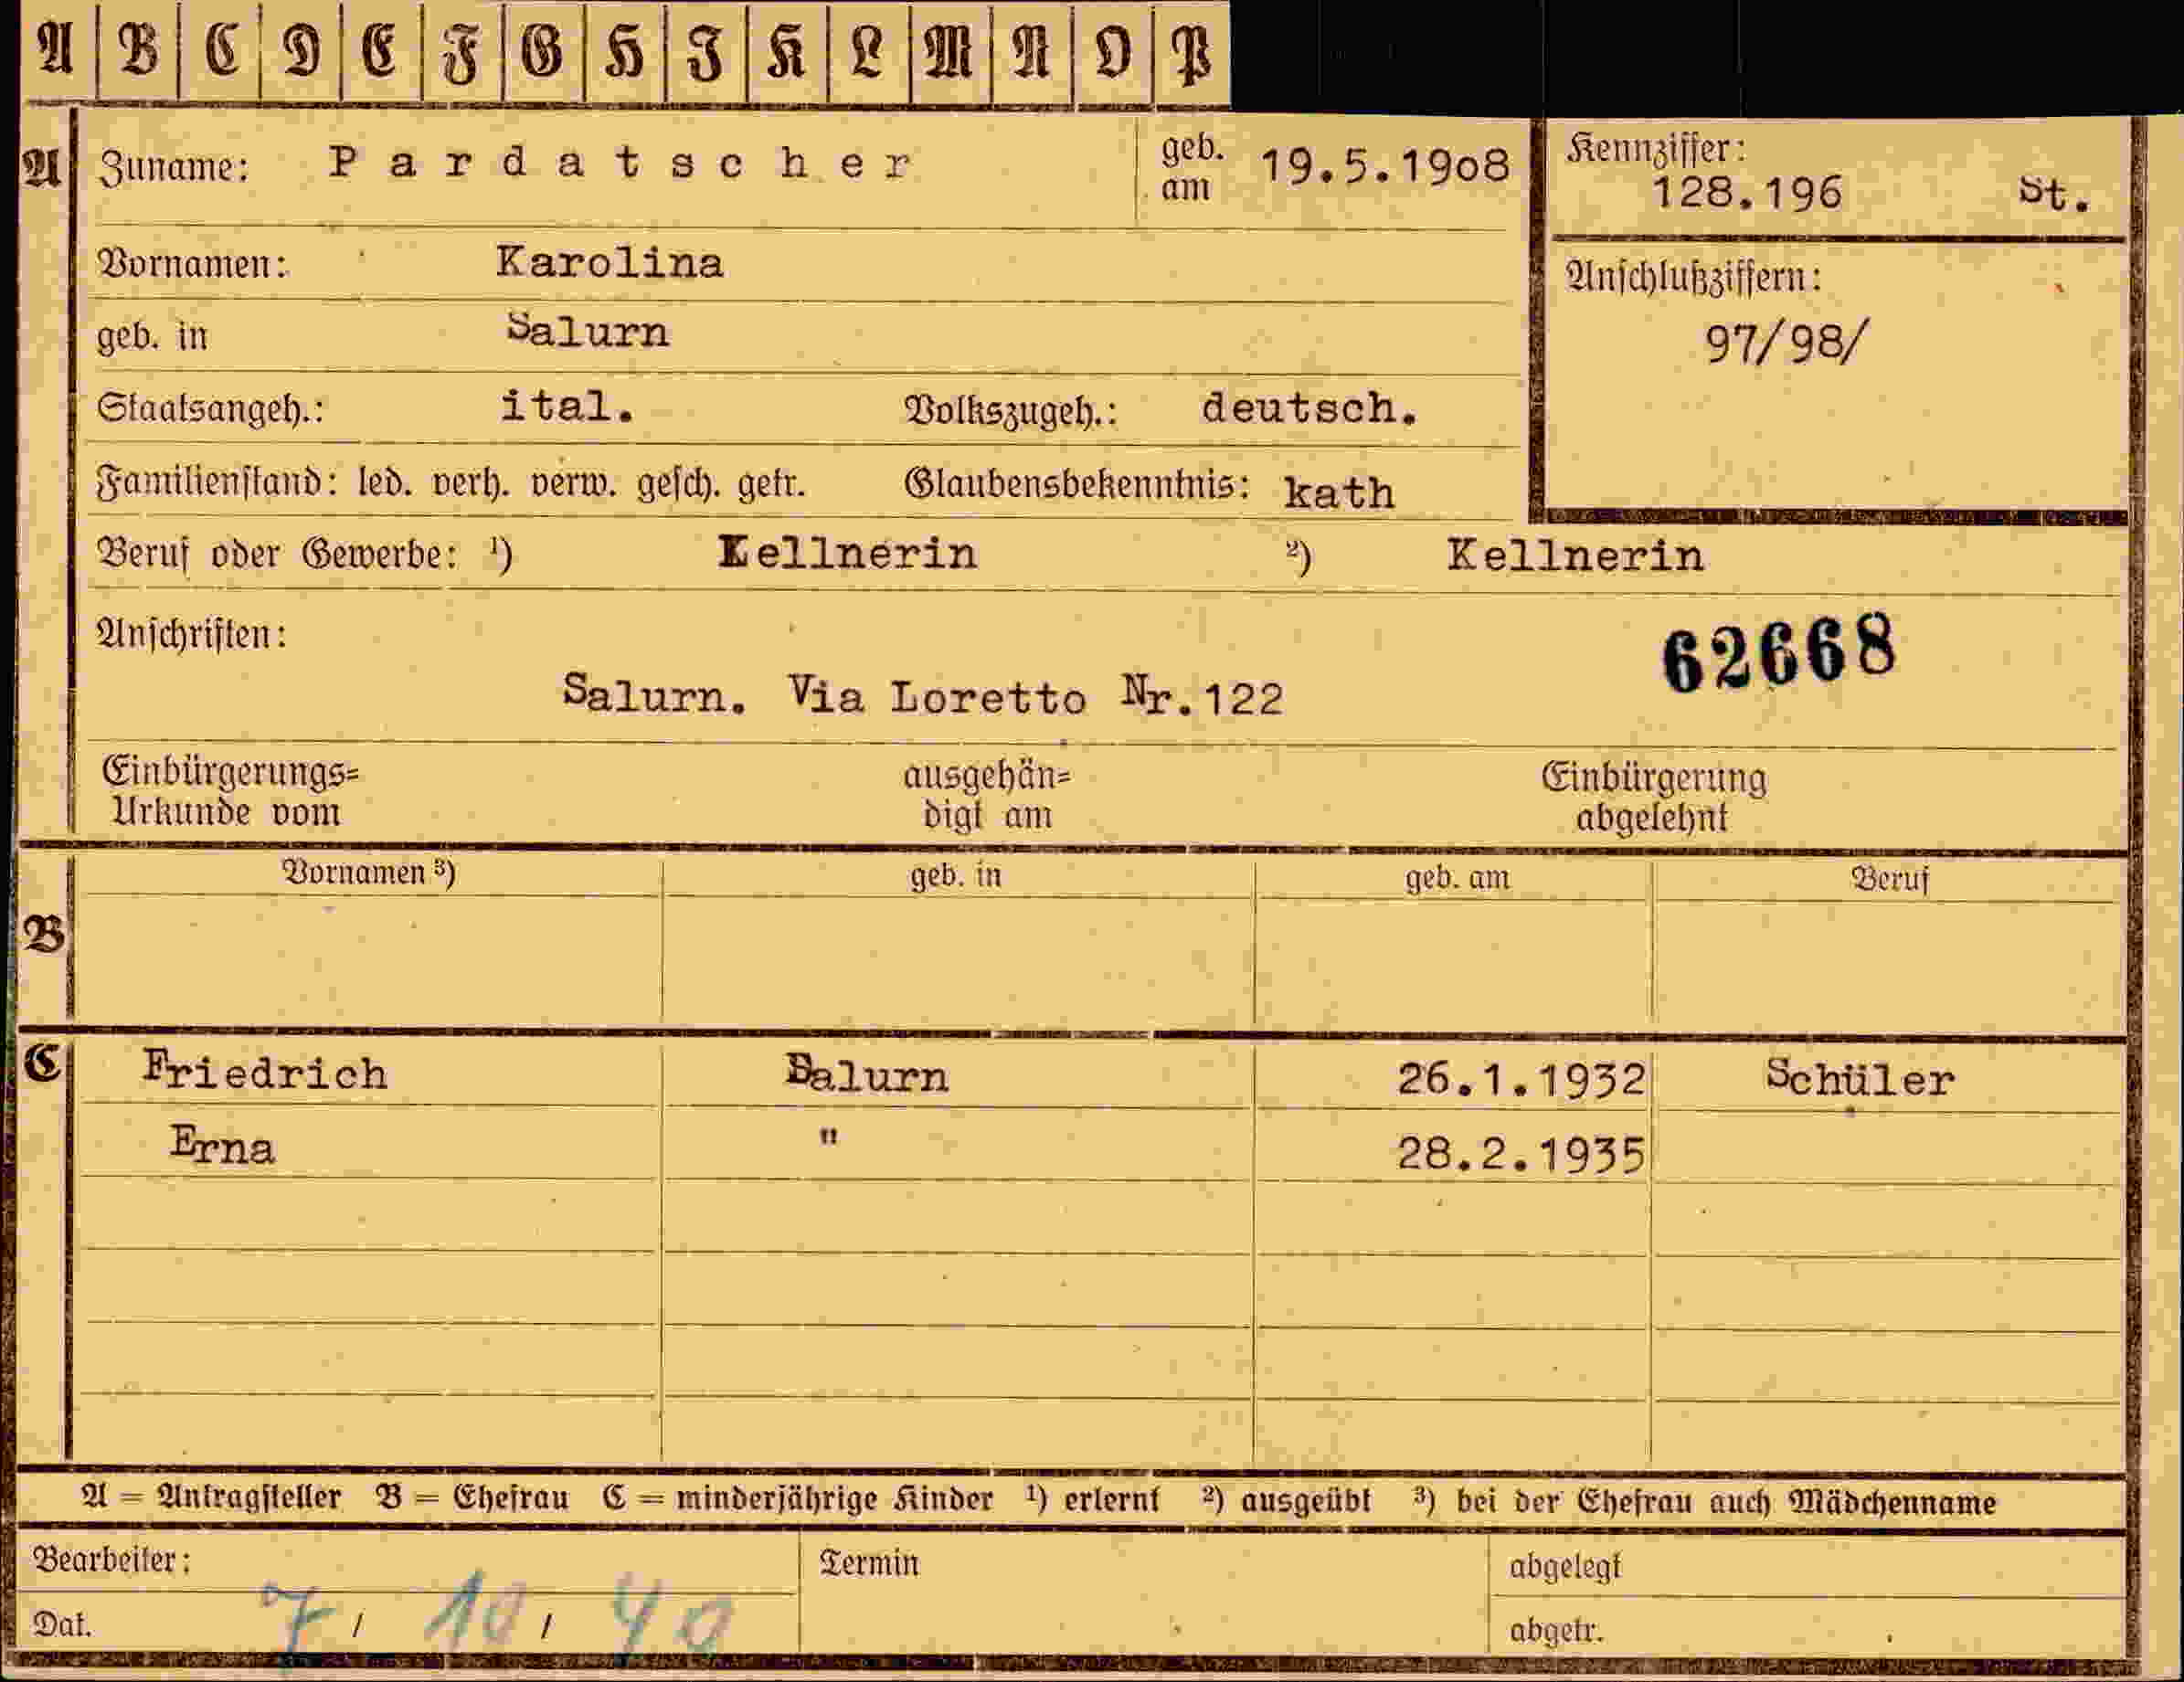 A B C D E F G H I K L M N O P
A Zuname: Pardatscher geb. am 19.5.19o8 Kennziffer: 128.196 St.
Vornamen: Karolina
Anschlußziffern:
geb. in Salurn
97/98/
Staatsangeh.: ital. Volkszugeh.: deutsch.
Familienstand: led. verh. verw. gesch. getr. Glaubensbekenntnis: kath
Beruf oder Gewerbe: ¹) Kellnerin ²) Kellnerin
Anschriften: 62668
Salurn. Via Loretto Nr.122
Einbürgerungs= ausgehän= Einbürgerung
Urkunde vom digt am abgelehnt
Vornamen ³) geb. in geb. am Beruf
B
C Friedrich Salurn 26.1.1932 Schüler
Erna " 28.2.1935
A = Antragsteller B = Ehefrau C = minderjährige Kinder ¹) erlernt ²) ausgeübt ³) bei der Ehefrau auch Mädchenname
Bearbeiter: Termin abgelegt
Dat. 7 / 10 / 40 abgetr.